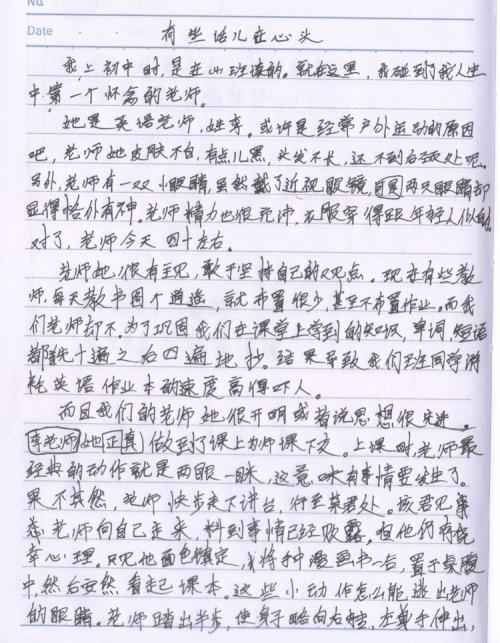 No.
Date
有些话儿在心头
我上初中时，是在山班读的。就在这里，我碰到了我人生
中第一个怀念的老师。
她是英语老师，姓李。或许是经常户外运动的原因
吧，老师她皮肤不白，有点儿黑，头发不长，还不到后颈处呢。
另外，老师有一双小眼睛，虽然戴了近视眼镜，两只眼睛却
显得格外有神，老师精力也很充沛，衣服穿得跟年轻人似的
对了，老师今天四十左右。
老师她很有主见，敢于坚持自己的观点。现在有些教
师，每天教书图个逍遥，就布置很少，甚至不布置作业。而我
们老师却不。为了巩固我们在课堂上学到的知识，单词，短语
都十遍之后四遍地抄。结果导致我们班同学消
耗英语作业本的速度高得吓人。
而且我们的老师她很开明或者说思想很先进。
李老师她真正做到了课上为师课下友。上课时，老师最
经典的动作就是两眼一眯，这意味有事情要发生了。
果不其然，老师快步走下讲台，行至某君处。该君见事
态，老师向自己走来，料到事情已经败露。但他仍有侥
幸心理。只见他面色镇定，将手中漫画书一合，置于桌膛
中，然后安然看起课本。这些小动作怎么能逃出老师
的眼睛。老师踏出半步，使身子略向右，左单手伸出，